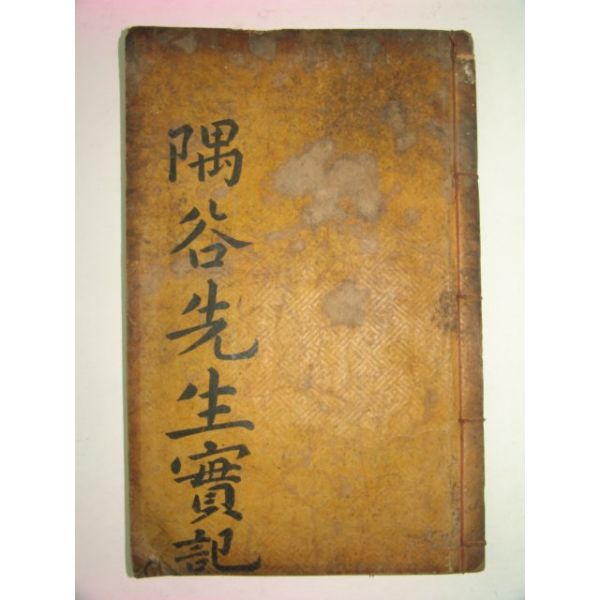 隅谷先生實記